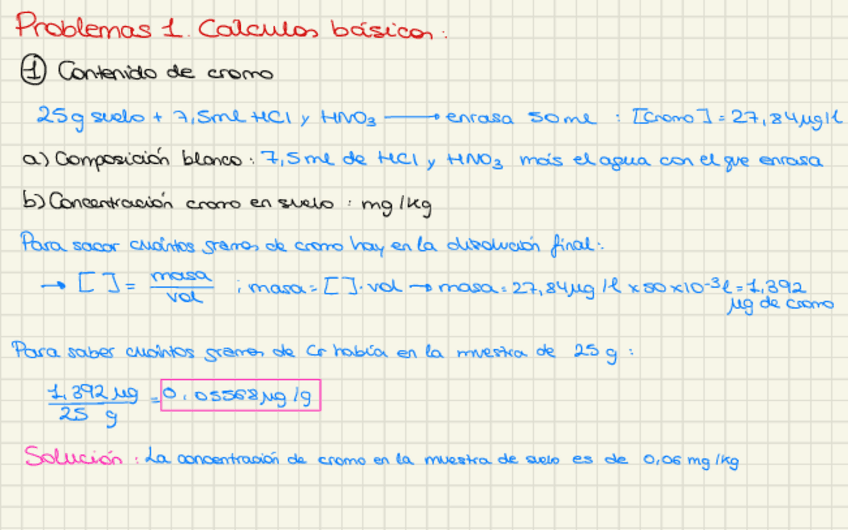 Problemas 1. Calculos básicos:
① Contenido de cromo
25g suelo + 7,5ml HCl y HNO₃ → enrasa 50ml : [Cromo] = 27,84µg/l
a) Composición blanco: 7,5ml de HCl y HNO₃ más el agua con el que enrasa
b) Concentración cromo en suelo : mg/kg
Para sacar cuántos gramos de cromo hay en la disolución final:
→ [ ] = masa/vol ; masa = [ ]·vol → masa = 27,84µg/l x 50x10⁻³l = 1,392 µg de cromo
Para saber cuántos gramos de Cr había en la muestra de 25 g :
1,392 µg / 25 g = 0,05568 µg/g
Solución : La concentración de cromo en la muestra de suelo es de 0,06 mg/kg